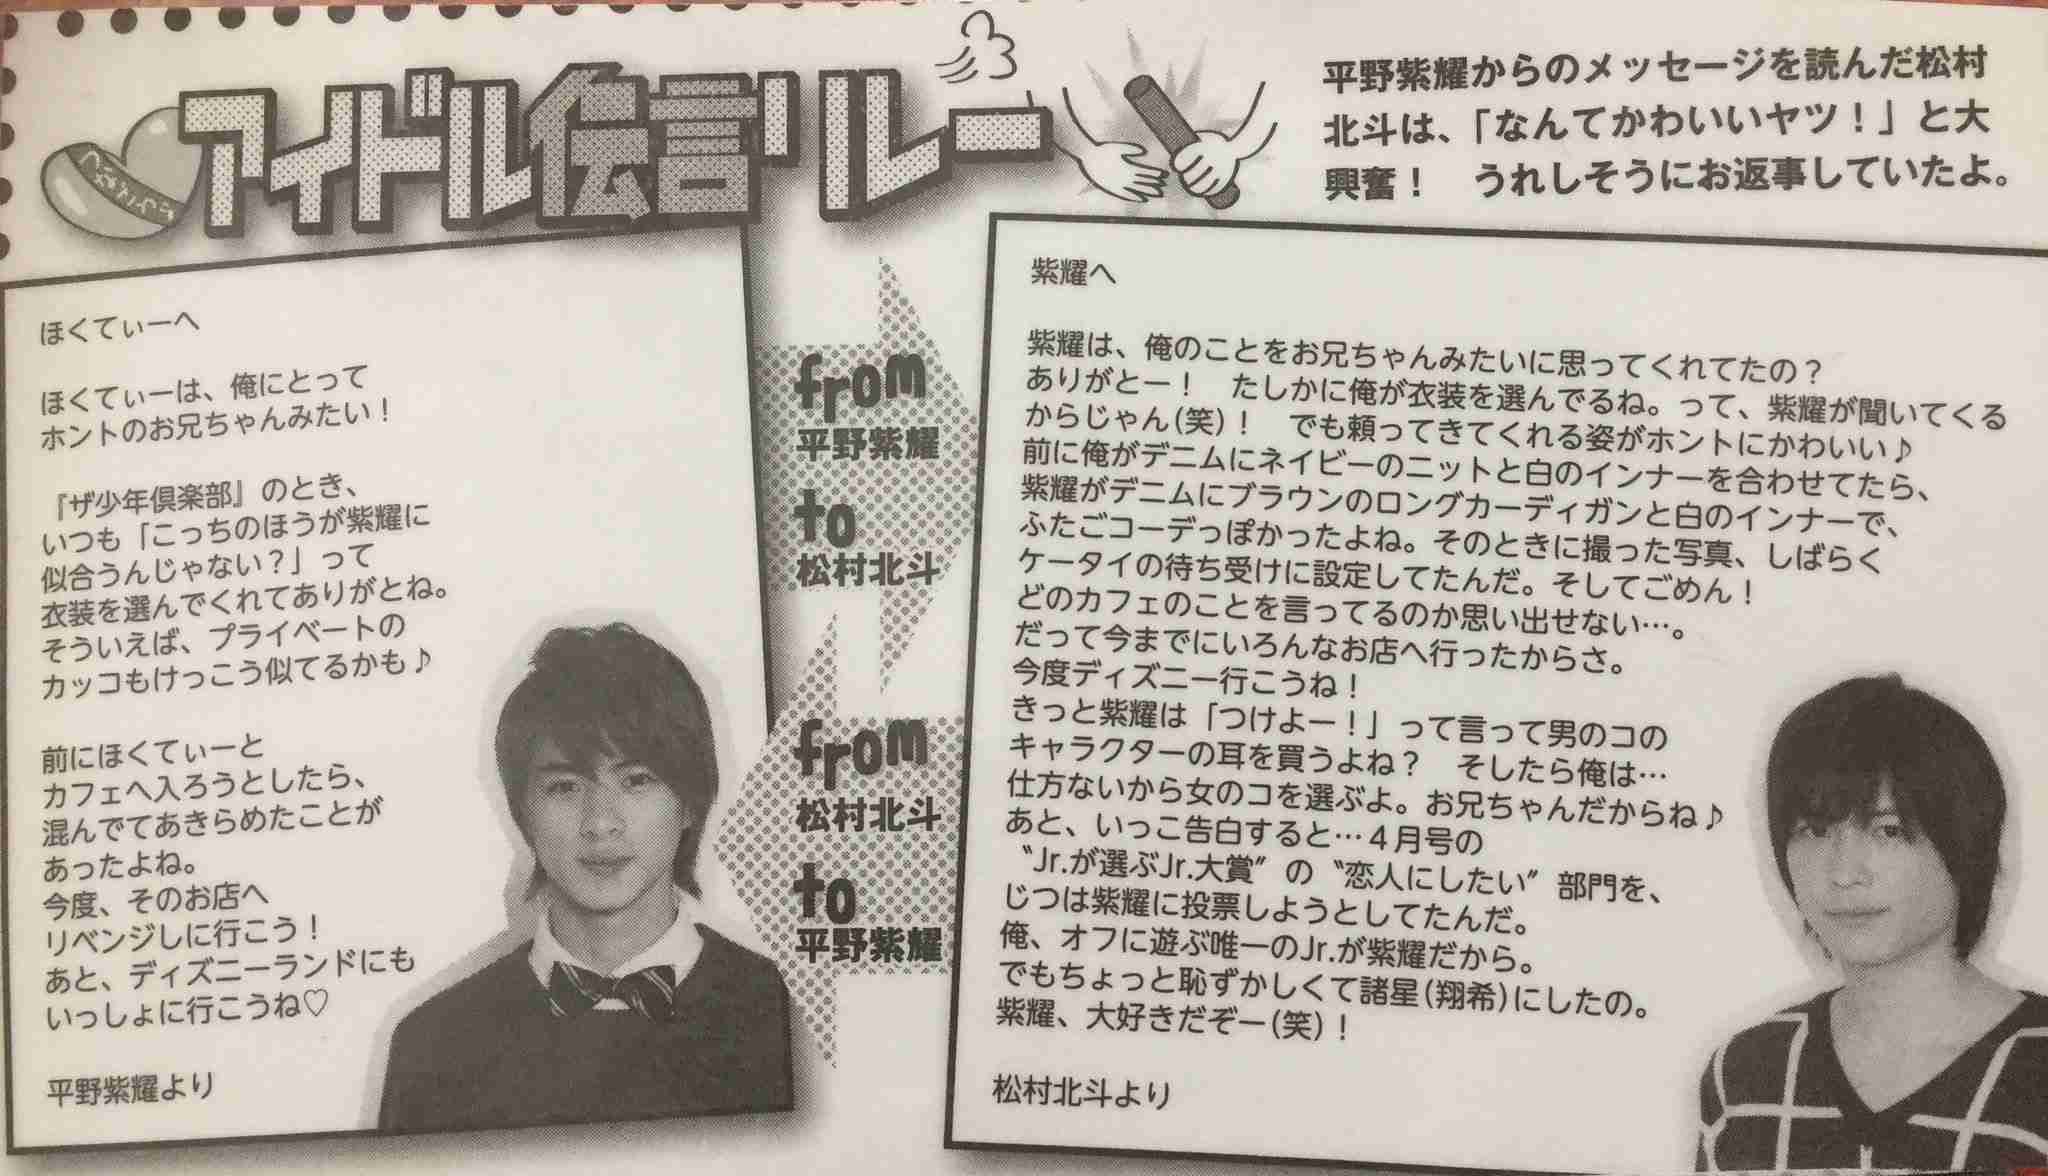 アイドル伝言リレー
平野紫耀からのメッセージを読んだ松村
北斗は、「なんてかわいいヤツ！」と大
興奮！　うれしそうにお返事していたよ。
ほくてぃーへ
ほくてぃーは、俺にとって
ホントのお兄ちゃんみたい！
『ザ少年倶楽部』のとき、
いつも「こっちのほうが紫耀に
似合うんじゃない？」って
衣装を選んでくれてありがとね。
そういえば、プライベートの
カッコもけっこう似てるかも♪
前にほくてぃーと
カフェへ入ろうとしたら、
混んでてあきらめたことが
あったよね。
今度、そのお店へ
リベンジしに行こう！
あと、ディズニーランドにも
いっしょに行こうね♡
平野紫耀より
from
平野紫耀
to
松村北斗
from
松村北斗
to
平野紫耀
紫耀へ
紫耀は、俺のことをお兄ちゃんみたいに思ってくれてたの？
ありがとー！　たしかに俺が衣装を選んでるね。って、紫耀が聞いてくる
からじゃん(笑)！　でも頼ってきてくれる姿がホントにかわいい♪
前に俺がデニムにネイビーのニットと白のインナーを合わせてたら、
紫耀がデニムにブラウンのロングカーディガンと白のインナーで、
ふたごコーデっぽかったよね。そのときに撮った写真、しばらく
ケータイの待ち受けに設定してたんだ。そしてごめん！
どのカフェのことを言ってるのか思い出せない…。
だって今までにいろんなお店へ行ったからさ。
今度ディズニー行こうね！
きっと紫耀は「つけよー！」って言って男のコの
キャラクターの耳を買うよね？　そしたら俺は…
仕方ないから女のコを選ぶよ。お兄ちゃんだからね♪
あと、いっこ告白すると…４月号の
〝Jr.が選ぶJr.大賞〟の〝恋人にしたい〟部門を、
じつは紫耀に投票しようとしてたんだ。
俺、オフに遊ぶ唯一のJr.が紫耀だから。
でもちょっと恥ずかしくて諸星(翔希)にしたの。
紫耀、大好きだぞー(笑)！
松村北斗より